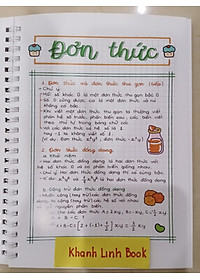 Đơn thức
1. Đơn thức và đơn thức thu gọn (tiếp)
- Chú ý
+ Mỗi số khác 0 là một đơn thức thu gọn bậc 0
+ Số 0 cũng được coi là một đơn thức và nó không có bậc.
+ Khi viết một đơn thức thu gọn ta thường viết phần hệ số trước, phần biến sau; các biến viết theo thứ tự trong bảng chữ cái
+ Với các đơn thức có hệ số là 1
hay -1 ta không viết số 1.
2. Đơn thức đồng dạng
a. Khái niệm
+ Hai đơn thức đồng dạng là hai đơn thức có hệ số khác 0 và có phần biến giống nhau.
b. Cộng trừ đơn thức đồng dạng
Muốn cộng (hay trừ) các đơn thức đồng dạng, ta cộng (hay trừ) các hệ số với nhau và giữ nguyên phần biến.
Khanh Linh Book